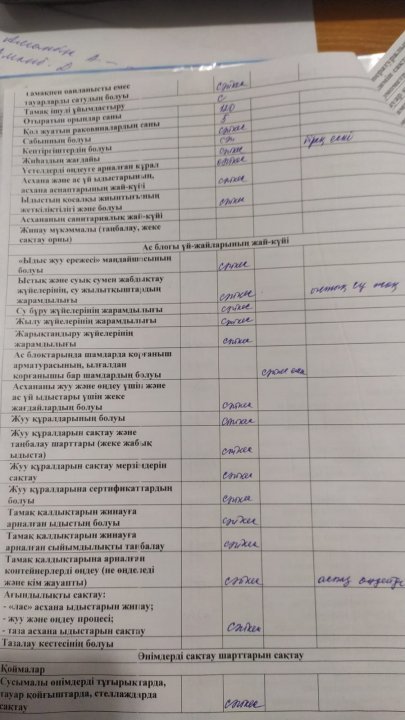 Тамақпен байланысты емес
тауарларды сатудың болуы сәйкес
Тамақ ішуді ұйымдастыру с
Отыратын орындар саны 120
Қол жуатын раковиналардың саны 5
Сабынның болуы сәйкес
Кептіргіштердің болуы сәй
Жиһаздың жағдайы сәйкес
Үстелдерді өңдеуге арналған құрал сәйкес
Асхана және ас үй ыдыстарының,
асхана аспаптарының жай-күйі сәйкес
Ыдыстың қосалқы жиынтығының
жеткіліктілігі және болуы сәйкес
Асхананың санитариялық жай-күйі
Жинау мүкәммалы (таңбалау, жеке
сақтау орны)
Ас блогы үй-жайларының жай-күйі
«Ыдыс жуу ережесі» маңдайшасының
болуы сәйкес
Ыстық және суық сумен жабдықтау
жүйелерінің, су жылытқыштардың
жарамдылығы сәйкес су жоқ
Су бұру жүйелерінің жарамдылығы сәйкес
Жылу жүйелерінің жарамдылығы сәйкес
Жарықтандыру жүйелерінің
жарамдылығы сәйкес
Ас блоктарында шамдарда қорғаныш
арматурасының, ылғалдан
қорғанышы бар шамдардың болуы сәйкес
Асхананы жуу және өңдеу үшін және
ас үй ыдыстары үшін жеке
жағдайлардың болуы сәйкес
Жуу құралдарының болуы сәйкес
Жуу құралдарын сақтау және
таңбалау шарттары (жеке жабық
ыдыста) сәйкес
Жуу құралдарын сақтау мерзімдерін
сақтау сәйкес
Жуу құралдарына сертификаттардың
болуы сәйкес
Тамақ қалдықтарын жинауға
арналған ыдыстың болуы сәйкес
Тамақ қалдықтарын жинауға
арналған сыйымдылықты таңбалау сәйкес
Тамақ қалдықтарына арналған
контейнерлерді өңдеу (не өңделеді
және кім жауапты) сәйкес аспаз өңдейді
Ағындылықты сақтау:
- «лас» асхана ыдыстарын жинау;
- жуу және өңдеу процесі;
- таза асхана ыдыстарын сақтау сәйкес
Тазалау кестесінің болуы
Өнімдерді сақтау шарттарын сақтау
Қоймалар
Сусымалы өнімдерді тұғырықтарда,
тауар қойғыштарда, стеллаждарда
сақтау сәйкес